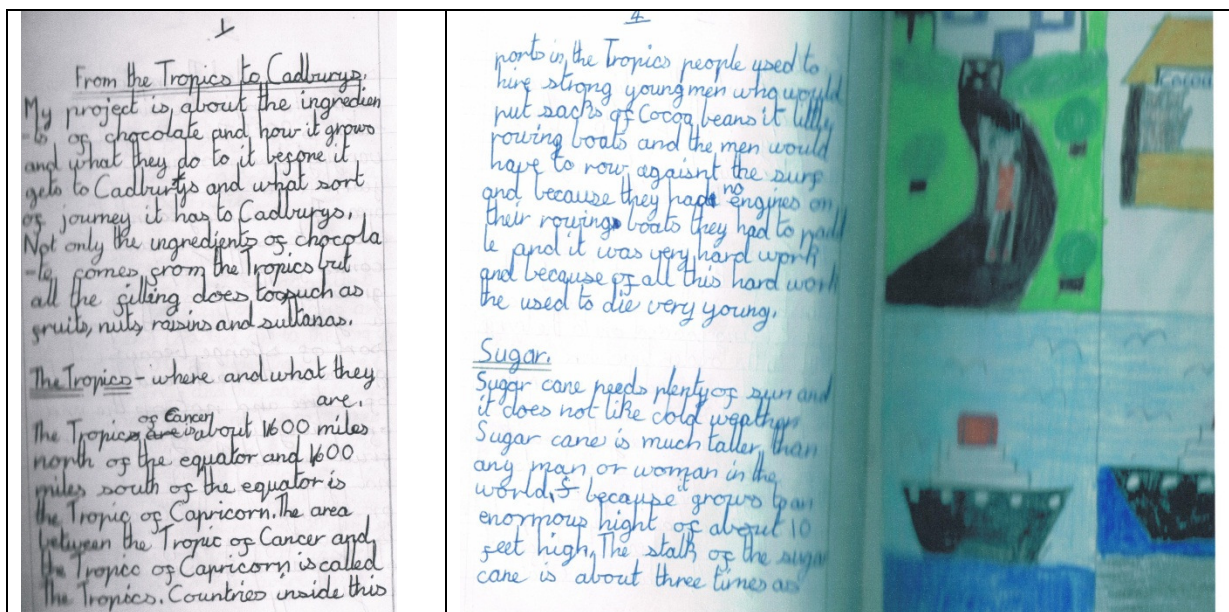 1
From the Tropics to Cadburys.
My project is about the ingredien
-ts of chocolate and how it grows
and what they do to it before it
gets to Cadburys and what sort
of journey it has to Cadburys.
Not only the ingredients of chocola
-te, comes from the Tropics but
all the filling does too, such as
fruits, nuts, raisins and sultanas.
The Tropics - where and what they
are.
of Cancer
The Tropics are is about 1600 miles
north of the equator and 1600
miles south of the equator is
the Tropic of Capricorn. The area
between the Tropic of Cancer and
the Tropic of Capricorn is called
The Tropics. Countries inside this
4
ports in the Tropics people used to
hire strong young men who would
put sacks of Cocoa beans it
rowing boats and the men would
have to row agaisnt the surf
and because they had no engines on
their rowing boats they had to padd
le and it was very hard work
and because of all this hard work
the used to die very young.
Sugar.
Sugar cane needs plenty of sun and
it does not like cold weather
Sugar cane is much taller, than
any man or woman in the
world, because it grows to an
enormous hight of about 10
feet high, The stalk of the sugar
cane is about three times as
Cocoa